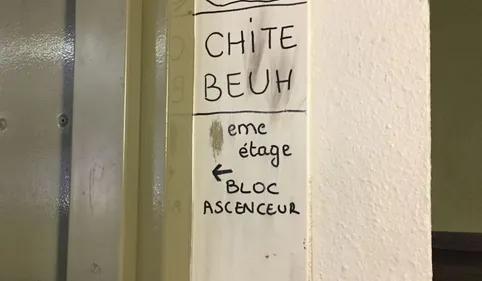 CHiTE
BEUH
eme
étage
← BLOC
ASCENCEUR